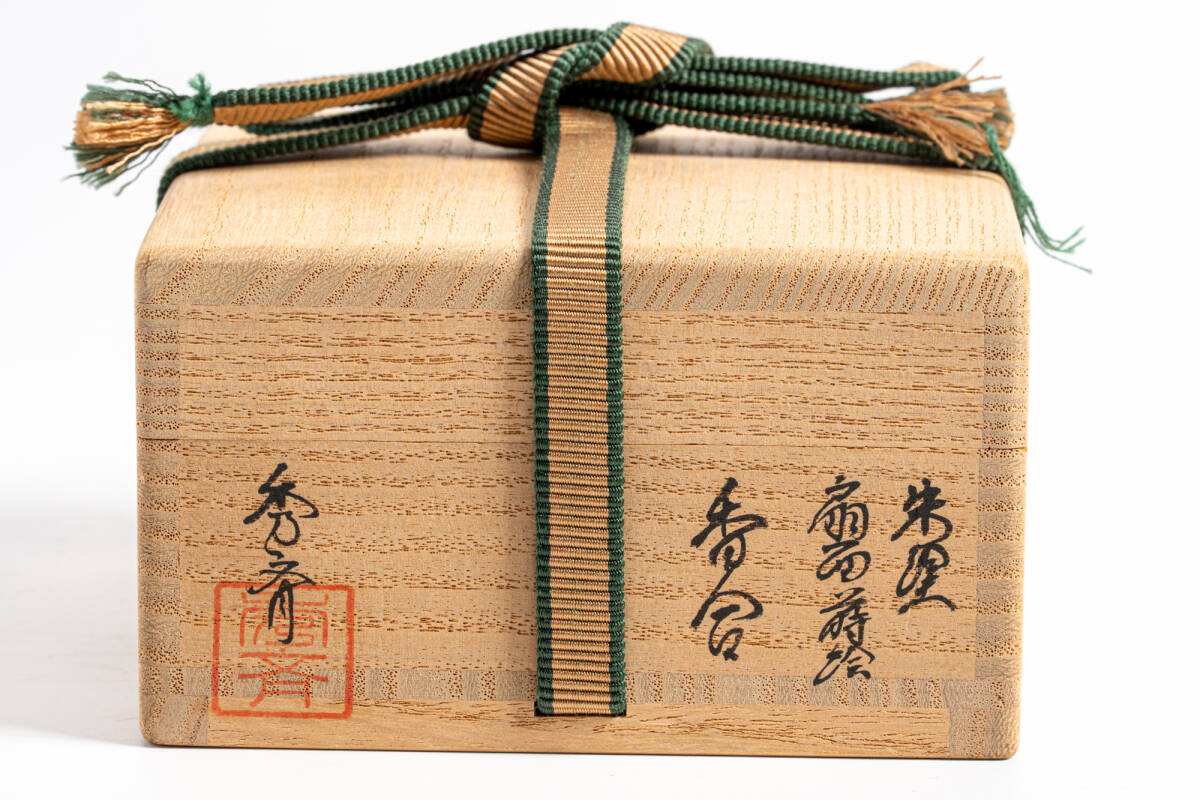 朱塗
扇面蒔絵
香合
秀斉